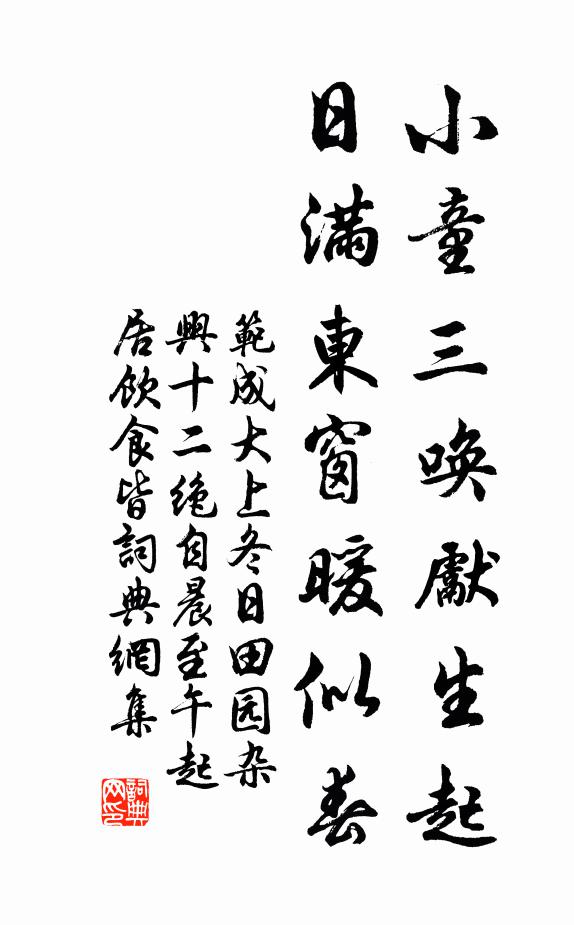 小童三喚獻生起
日滿東窗暖似春
範成大上冬日田园杂
興十二绝自晨至午起
居飲食皆詞典網集
詞典
网印